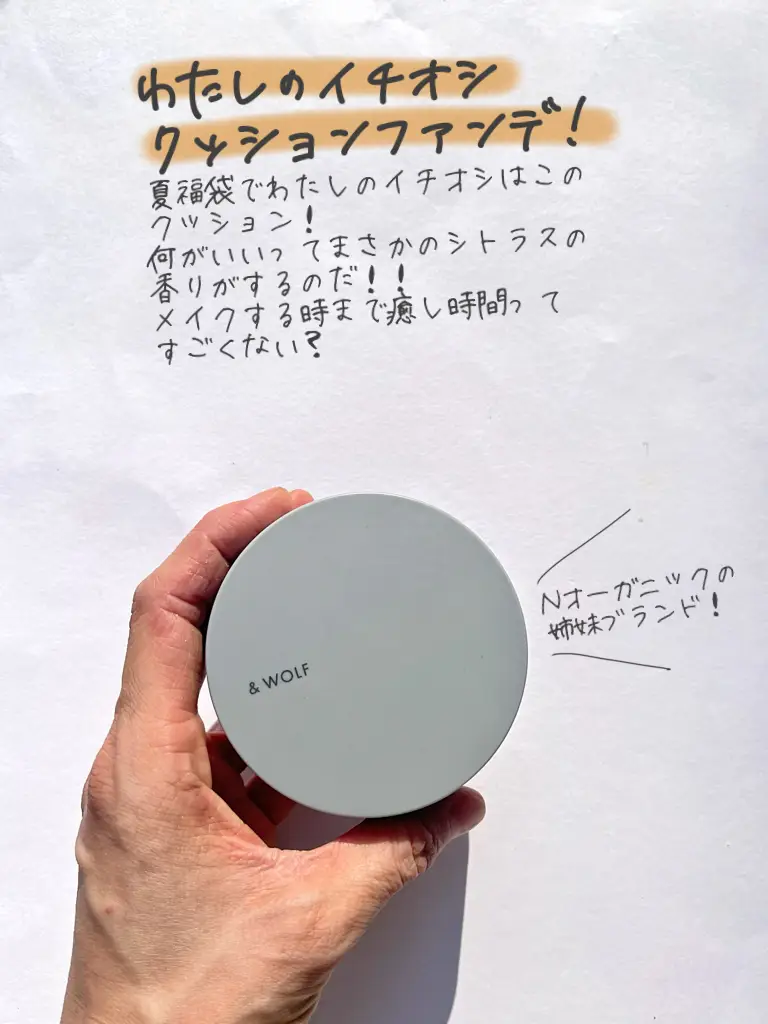 わたしのイチオシ
クッションファンデ！
夏福袋でわたしのイチオシはこの
クッション！
何がいいってまさかのシトラスの
香りがするのだ！！
メイクする時まで癒し時間って
すごくない？
Nオーガニックの
姉妹ブランド！
& WOLF